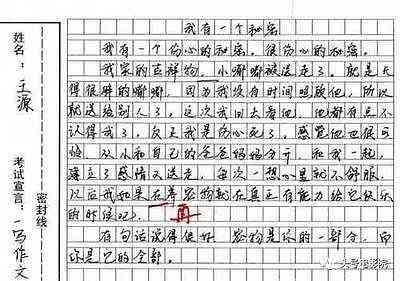 我有一个秘密
我有一个伤心的秘密，很伤心的秘密。
我家的吉祥物，小嘟嘟被送走了。就是长
得很胖的嘟嘟，因为我没有时间照顾他，所以
就送给别人了，这次我回去看他，他都有点不
认得我了，反正我是伤心死了，感觉他也很可
怜，从小和自己的爸爸妈妈分开，和我一起，
建立了感情又送走，每次一想心里就不舒服。
以后我如果在养宠物就在真正有能力给它快乐
的时候吧。
再
有句话说得很好：宠物是你的一部分，而
你是它的全部。
姓名：王源
考试宣言：一写作文
密封线
头号电影院